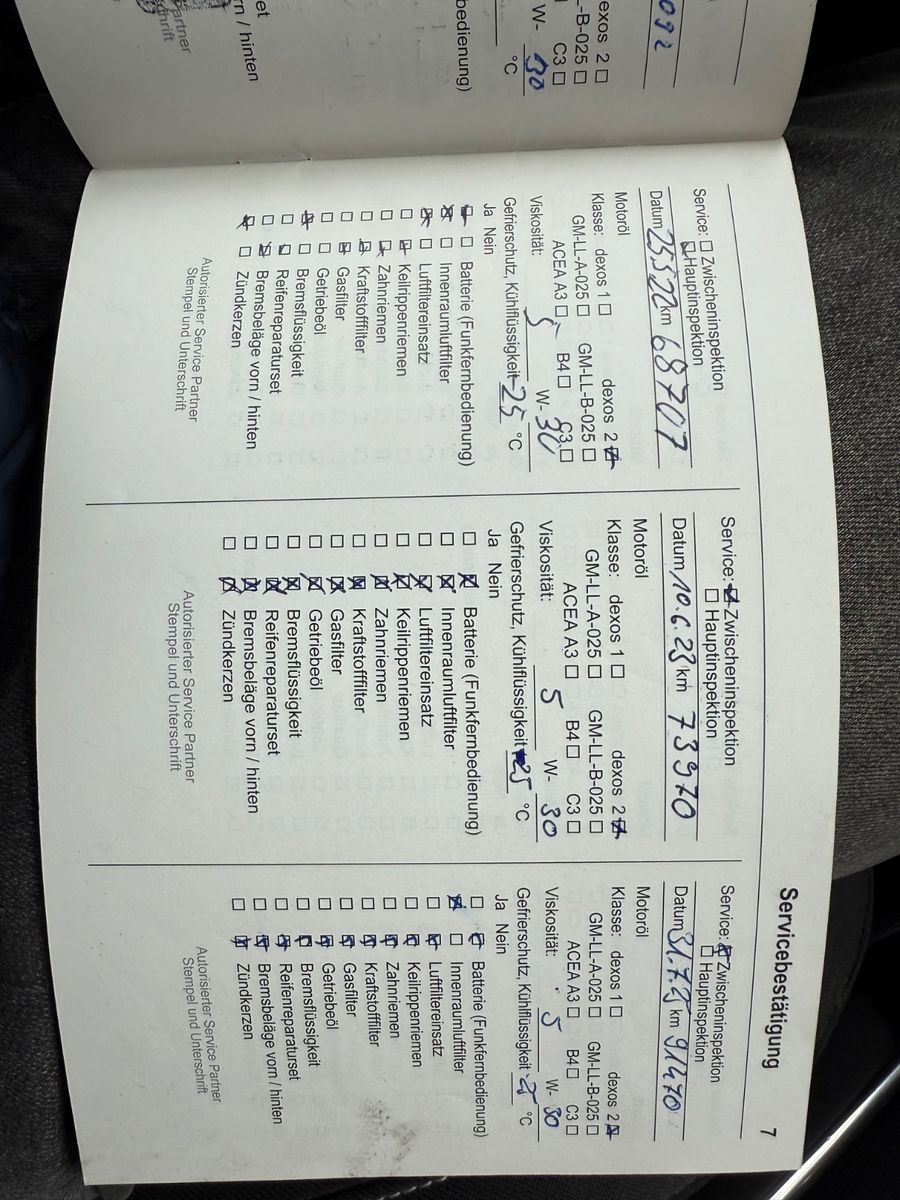 092
dexos 2 ☐
L-B-025 ☐
C3 ☐
W- 30
°C
bedienung)
rn / hinten
Partner
Servicebestätigung 7
Service: ☐ Zwischeninspektion
☒ Hauptinspektion
Datum 25.5.22 km 68707
Motoröl
Klasse: dexos 1 ☐ dexos 2 ☒
GM-LL-A-025 ☐ GM-LL-B-025 ☐
ACEA A3 ☐ B4 ☐ C3 ☐
Viskosität: 5 W- 30
Gefrierschutz, Kühlflüssigkeit -25 °C
Ja Nein
☒ ☐ Batterie (Funkfernbedienung)
☒ ☐ Innenraumluftfilter
☒ ☐ Luftfiltereinsatz
☐ ☒ Keilrippenriemen
☐ ☒ Zahnriemen
☐ ☒ Kraftstofffilter
☐ ☒ Gasfilter
☐ ☐ Getriebeöl
☒ ☐ Bremsflüssigkeit
☐ ☒ Reifenreparaturset
☐ ☒ Bremsbeläge vorn / hinten
☒ ☐ Zündkerzen
Autorisierter Service Partner
Stempel und Unterschrift
Service: ☒ Zwischeninspektion
☐ Hauptinspektion
Datum 10.6.23 km 73970
Motoröl
Klasse: dexos 1 ☐ dexos 2 ☒
GM-LL-A-025 ☐ GM-LL-B-025 ☐
ACEA A3 ☐ B4 ☐ C3 ☐
Viskosität: 5 W- 30
Gefrierschutz, Kühlflüssigkeit -25 °C
Ja Nein
☐ ☒ Batterie (Funkfernbedienung)
☐ ☒ Innenraumluftfilter
☐ ☒ Luftfiltereinsatz
☐ ☒ Keilrippenriemen
☐ ☒ Zahnriemen
☐ ☒ Kraftstofffilter
☐ ☒ Gasfilter
☐ ☒ Getriebeöl
☐ ☒ Bremsflüssigkeit
☐ ☒ Reifenreparaturset
☐ ☒ Bremsbeläge vorn / hinten
☐ ☒ Zündkerzen
Autorisierter Service Partner
Stempel und Unterschrift
Service: ☒ Zwischeninspektion
☐ Hauptinspektion
Datum 31.7.25 km 91470
Motoröl
Klasse: dexos 1 ☐ dexos 2 ☒
GM-LL-A-025 ☐ GM-LL-B-025 ☐
ACEA A3 ☐ B4 ☐ C3 ☐
Viskosität: 5 W- 30
Gefrierschutz, Kühlflüssigkeit -25 °C
Ja Nein
☐ ☒ Batterie (Funkfernbedienung)
☒ ☐ Innenraumluftfilter
☐ ☒ Luftfiltereinsatz
☐ ☒ Keilrippenriemen
☐ ☒ Zahnriemen
☐ ☒ Kraftstofffilter
☐ ☒ Gasfilter
☐ ☒ Getriebeöl
☐ ☒ Bremsflüssigkeit
☐ ☒ Reifenreparaturset
☐ ☒ Bremsbeläge vorn / hinten
☐ ☒ Zündkerzen
Autorisierter Service Partner
Stempel und Unterschrift